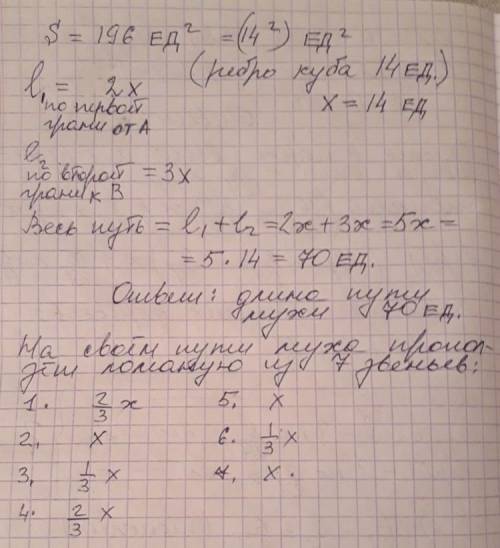 S = 196 ЕД² = (14²) ЕД²
(ребро куба 14 ЕД.)
l₁ = 2x
по первой
грани от А
x = 14 ЕД
l₂
по второй = 3x
грани к В
Весь путь = l₁ + l₂ = 2x + 3x = 5x =
= 5 · 14 = 70 ЕД.
Ответ: длина пути
мухи 70 ЕД.
На своём пути муха пропол-
зёт ломаную из 7 звеньев:
1. 2/3 x 5. x
2. x 6. 1/3 x
3. 1/3 x 7. x.
4. 2/3 x